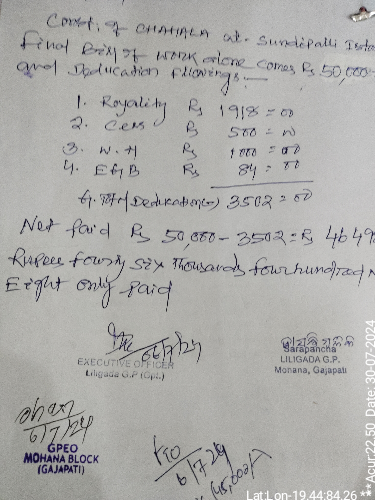 Const. of CHAHALA at. Sundipalli
Final Bill of work done comes Rs 50,000
and Deducation followings:—
1. Royality Rs 1918 = 00
2. Cess Rs 500 = 00
3. W.H Rs 1000 = 00
4. EGB Rs 84 = 00
Deducation(-) 3502 = 00
Net Paid Rs 50,000 - 3502 = Rs 4649
Rupee fourty six Thousands four hundred
Eight only Paid
6/7/24
EXECUTIVE OFFICER
Liligada G.P (Gpt.)
Sarapancha
LILIGADA G.P.
Mohana, Gajapati
6/7/24
GPEO
MOHANA BLOCK
(GAJAPATI)
6/7/24
Lat:Lon-19.44:84.26 **Acur:22.50 Date: 30-07-2024